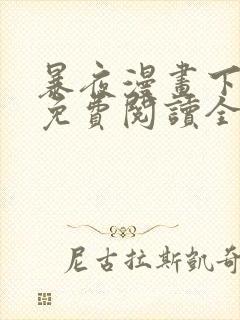 暴夜漫畫下
免費閱讀全
尼古拉斯凱奇